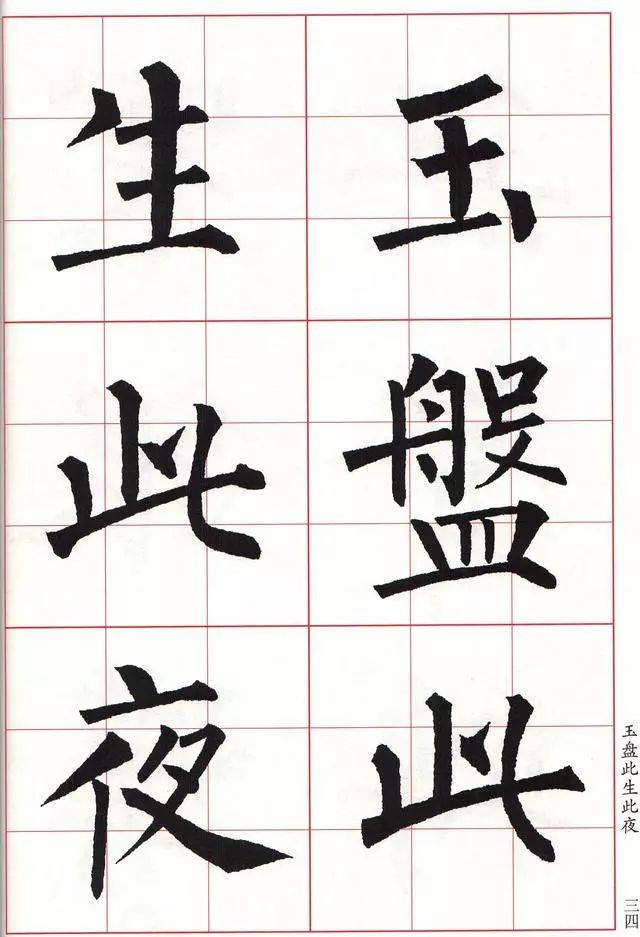 玉盤此
生此夜
玉盘此生此夜
三四